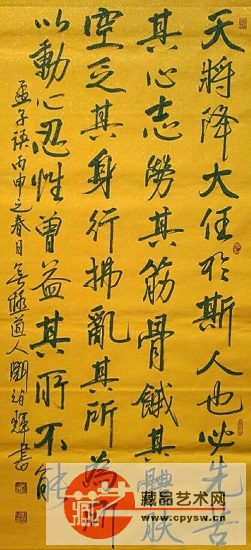 天将降大任於斯人也必先苦
其心志勞其筋骨餓其體膚
空乏其身行拂亂其所為所
以動心忍性曾益其所不能
孟子語丙申之春日無極道人
書
藏艺
藏品艺术网
www.cpysw.cn